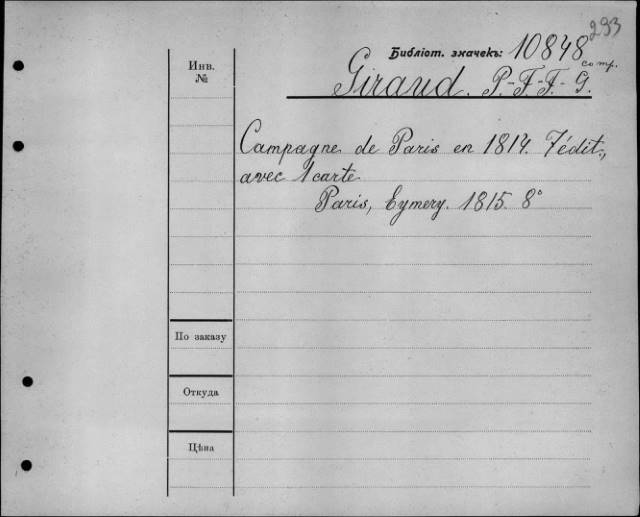 293
Библіот. значекъ: 10848
comp.
Инв.
№
Giraud. P.-F.-F.-G.
Campagne de Paris en 1814. 7 édit.,
avec 1 carte
Paris, Eymery. 1815. 8°
По заказу
Откуда
Цѣна